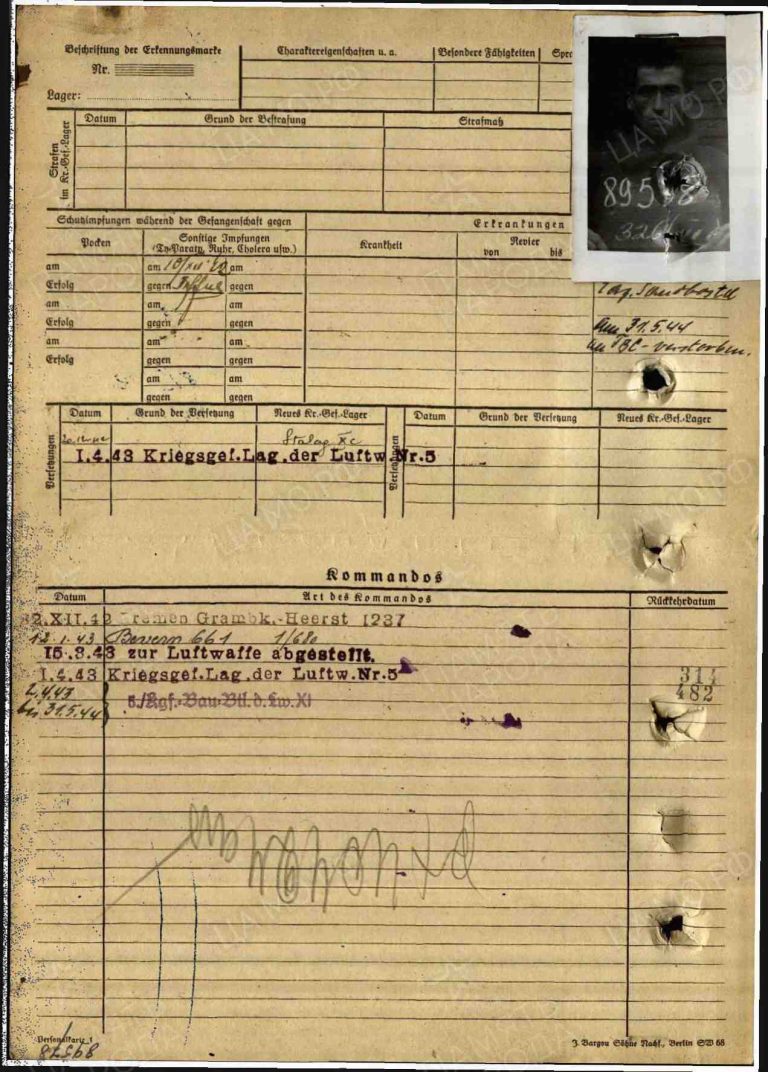 Beschriftung der Erkennungsmarke
Nr.
Lager:
Charaktereigenschaften u. a.
Besondere Fähigkeiten
Spra
Strafen im Kr.-Gef.-Lager
Datum
Grund der Bestrafung
Strafmaß
895
Schutzimpfungen während der Gefangenschaft gegen
Erkrankungen
Pocken
Sonstige Impfungen
(Ty-Paraty, Ruhr, Cholera usw.)
Krankheit
Revier
von bis
am am am
Erfolg gegen gegen
am am am
Erfolg gegen gegen
am am am
Erfolg gegen gegen
am am
gegen gegen
Sandbostel
Am 31.5.44
an TBC-verstorben.
Versetzungen
Datum Grund der Versetzung Neues Kr.-Gef.-Lager
Versetzungen
Datum Grund der Versetzung Neues Kr.-Gef.-Lager
Stalag Xc
1.4.43 Kriegsgef.Lag.der Luftw.Nr.5
Kommandos
Datum Art des Kommandos Rückkehrdatum
2.XII.42 Bremen Grambk.-Heerst 1237
12.1.43 Bevern 661 1/680
15.3.43 zur Luftwaffe abgestellt.
1.4.43 Kriegsgef.Lag.der Luftw.Nr.5 314
2.4.43 482
bis 31.5.44 5./Kgf.-Bau-Btl.d.Lw.XI
Personalkarte 1
89578
J. Bargou Söhne Nachf., Berlin SW 68
ЦА МО РФ